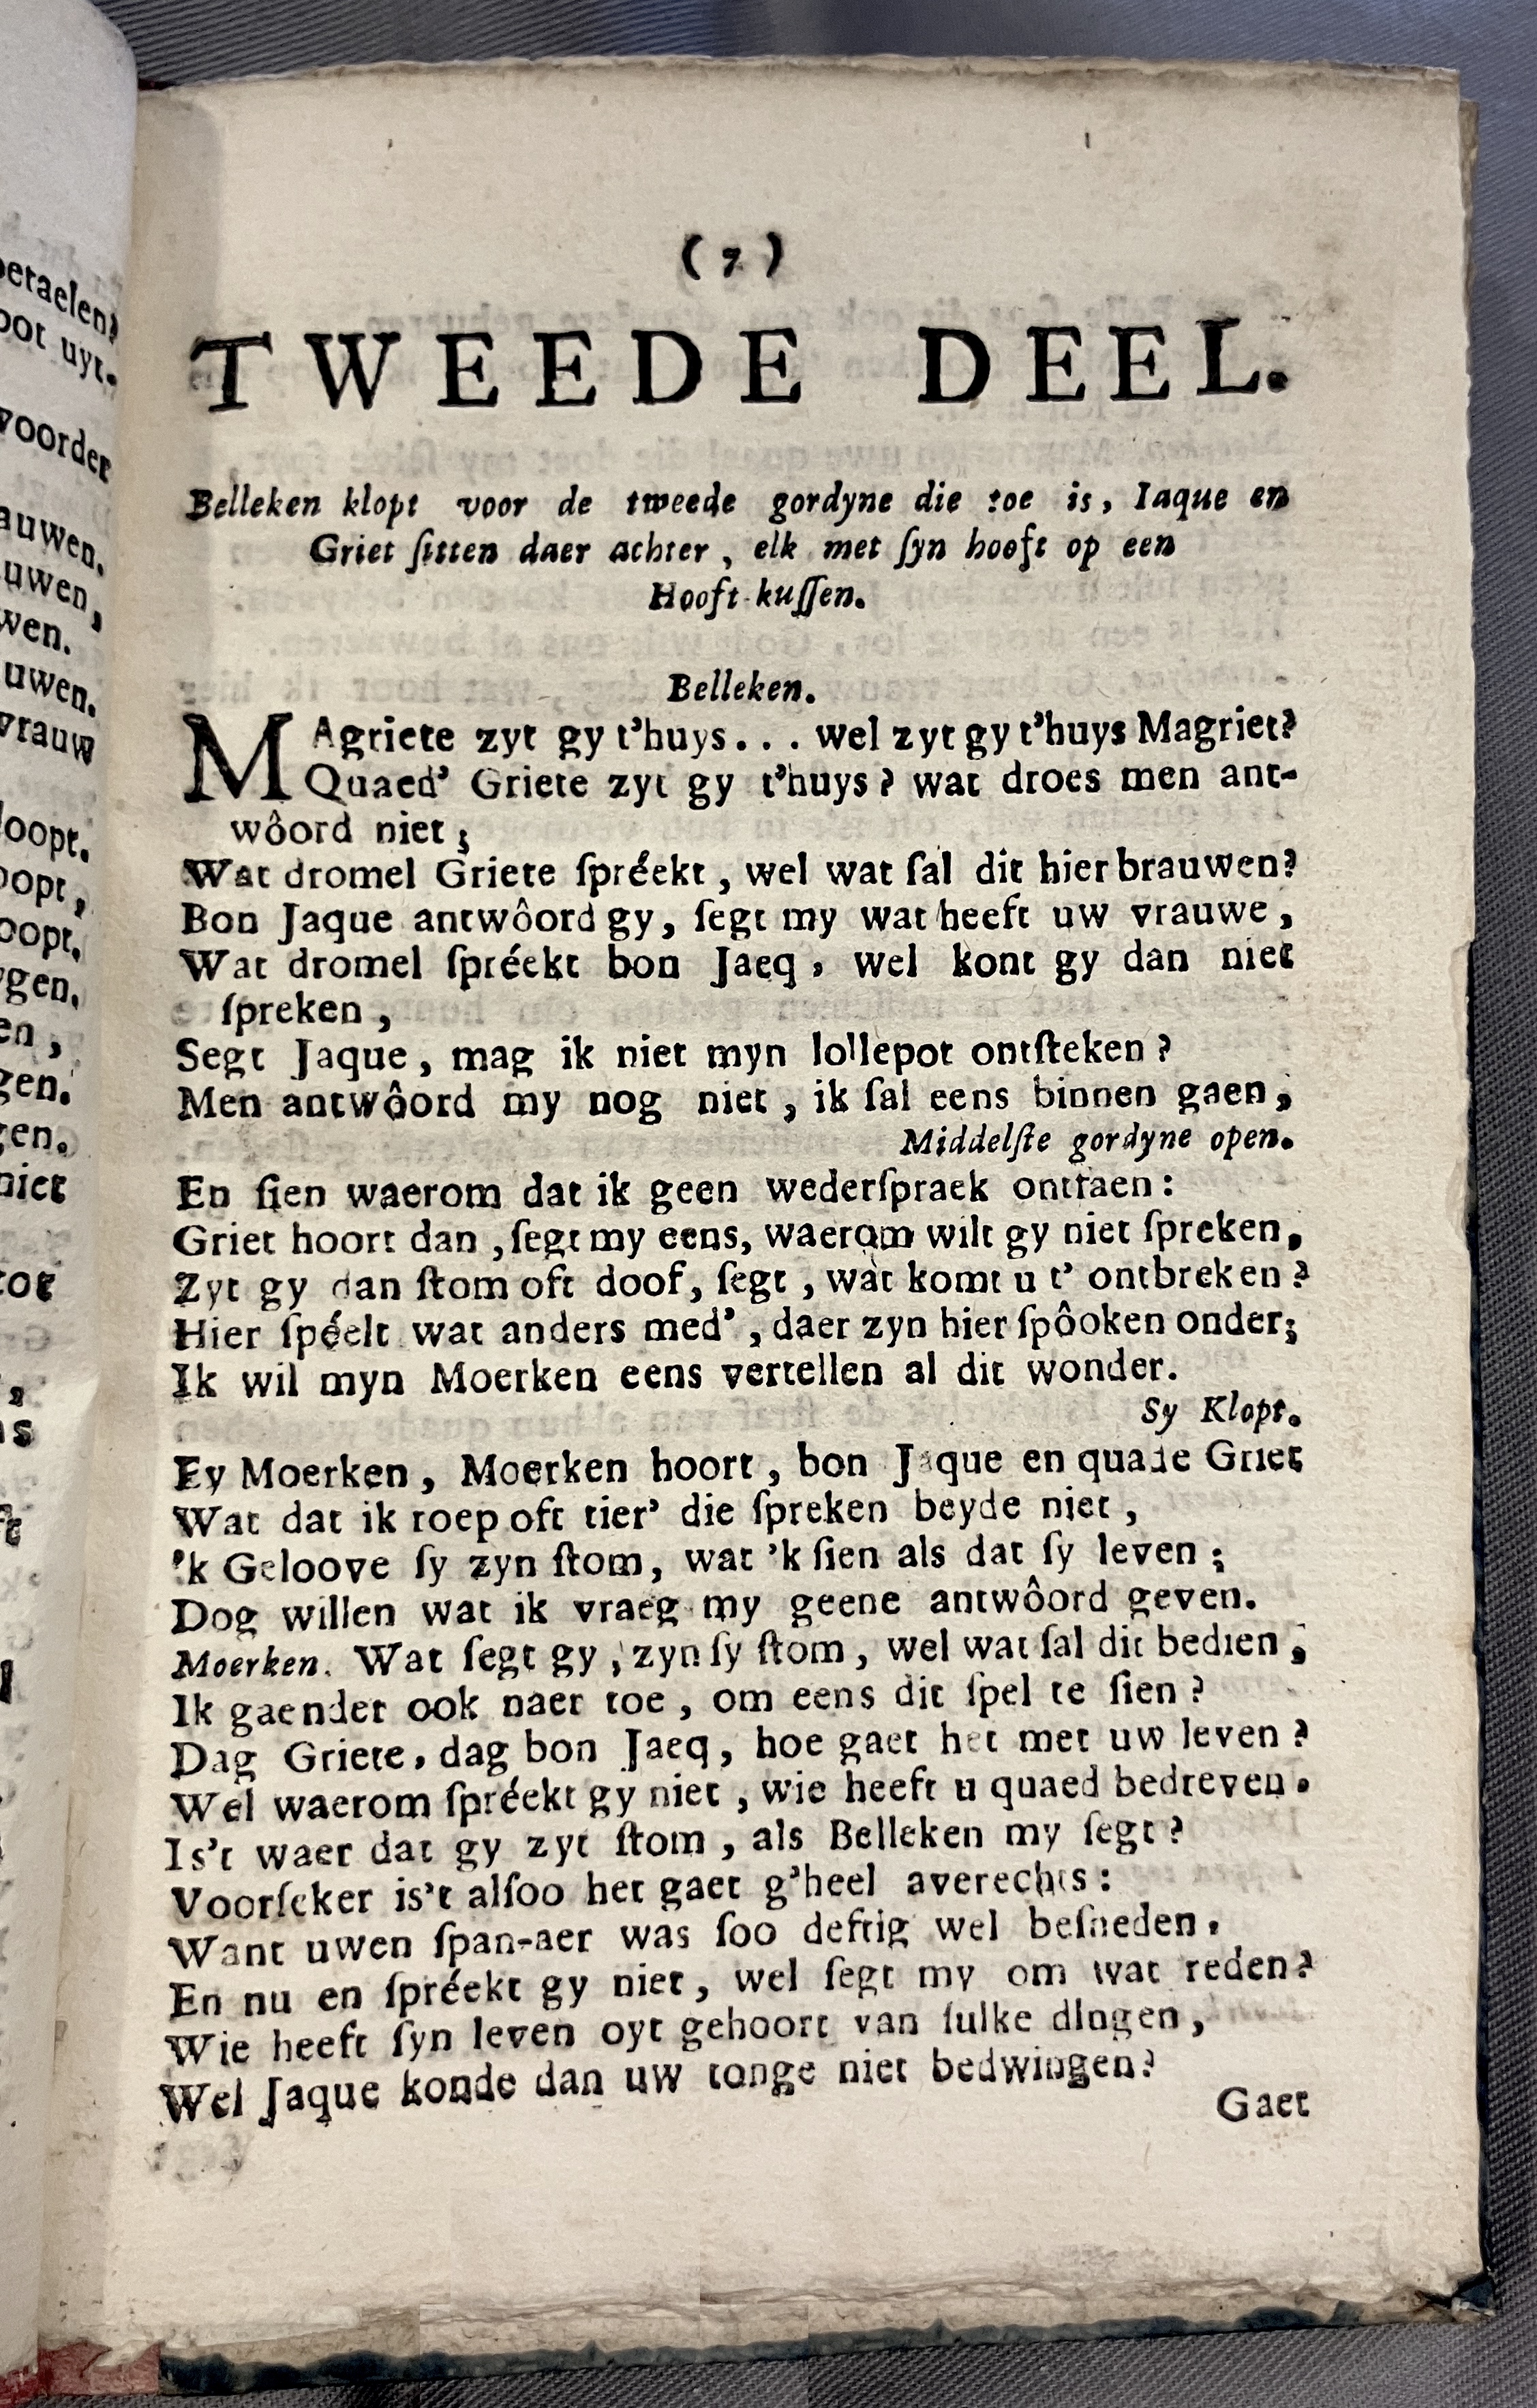 ( 7 )
TWEEDE DEEL.
Belleken klopt voor de tweede gordyne die toe is, Iaque en
Griet ſitten daer achter, elk met ſyn hooft op een
Hooft-kuſſen.
Belleken.
MAgriete zyt gy t'huys... wel zyt gy t'huys Magriet?
Quaed' Griete zyt gy t'huys? wat droes men ant-
wôord niet;
Wat dromel Griete ſpréekt, wel wat ſal dit hier brauwen?
Bon Jaque antwôord gy, ſegt my wat heeft uw vrauwe,
Wat dromel ſpréekt bon Jaeq, wel kont gy dan niet
ſpreken,
Segt Jaque, mag ik niet myn lollepot ontſteken?
Men antwôord my nog niet, ik ſal eens binnen gaen,
Middelſte gordyne open.
En ſien waerom dat ik geen wederſpraek ontfaen:
Griet hoort dan, ſegt my eens, waerom wilt gy niet ſpreken,
Zyt gy dan ſtom oft doof, ſegt, wat komt u t' ontbreken?
Hier ſpéelt wat anders med', daer zyn hier ſpôoken onder;
Ik wil myn Moerken eens vertellen al dit wonder.
Sy Klopt.
Ey Moerken, Moerken hoort, bon Jaque en quade Griet
Wat dat ik roep oft tier' die ſpreken beyde niet,
'k Geloove ſy zyn ſtom, wat 'k ſien als dat ſy leven;
Dog willen wat ik vraeg my geene antwôord geven.
Moerken. Wat ſegt gy, zyn ſy ſtom, wel wat ſal dit bedien,
Ik gaender ook naer toe, om eens dit ſpel te ſien?
Dag Griete, dag bon Jaeq, hoe gaet het met uw leven?
Wel waerom ſpréekt gy niet, wie heeft u quaed bedreven.
Is't waer dat gy zyt ſtom, als Belleken my ſegt?
Voorſeker is't alſoo het gaet g'heel averechts:
Want uwen ſpan-aer was ſoo deftig wel beſneden,
En nu en ſpréekt gy niet, wel ſegt my om wat reden?
Wie heeft ſyn leven oyt gehoort van ſulke dingen,
Wel Jaque konde dan uw tonge niet bedwingen?
Gaet